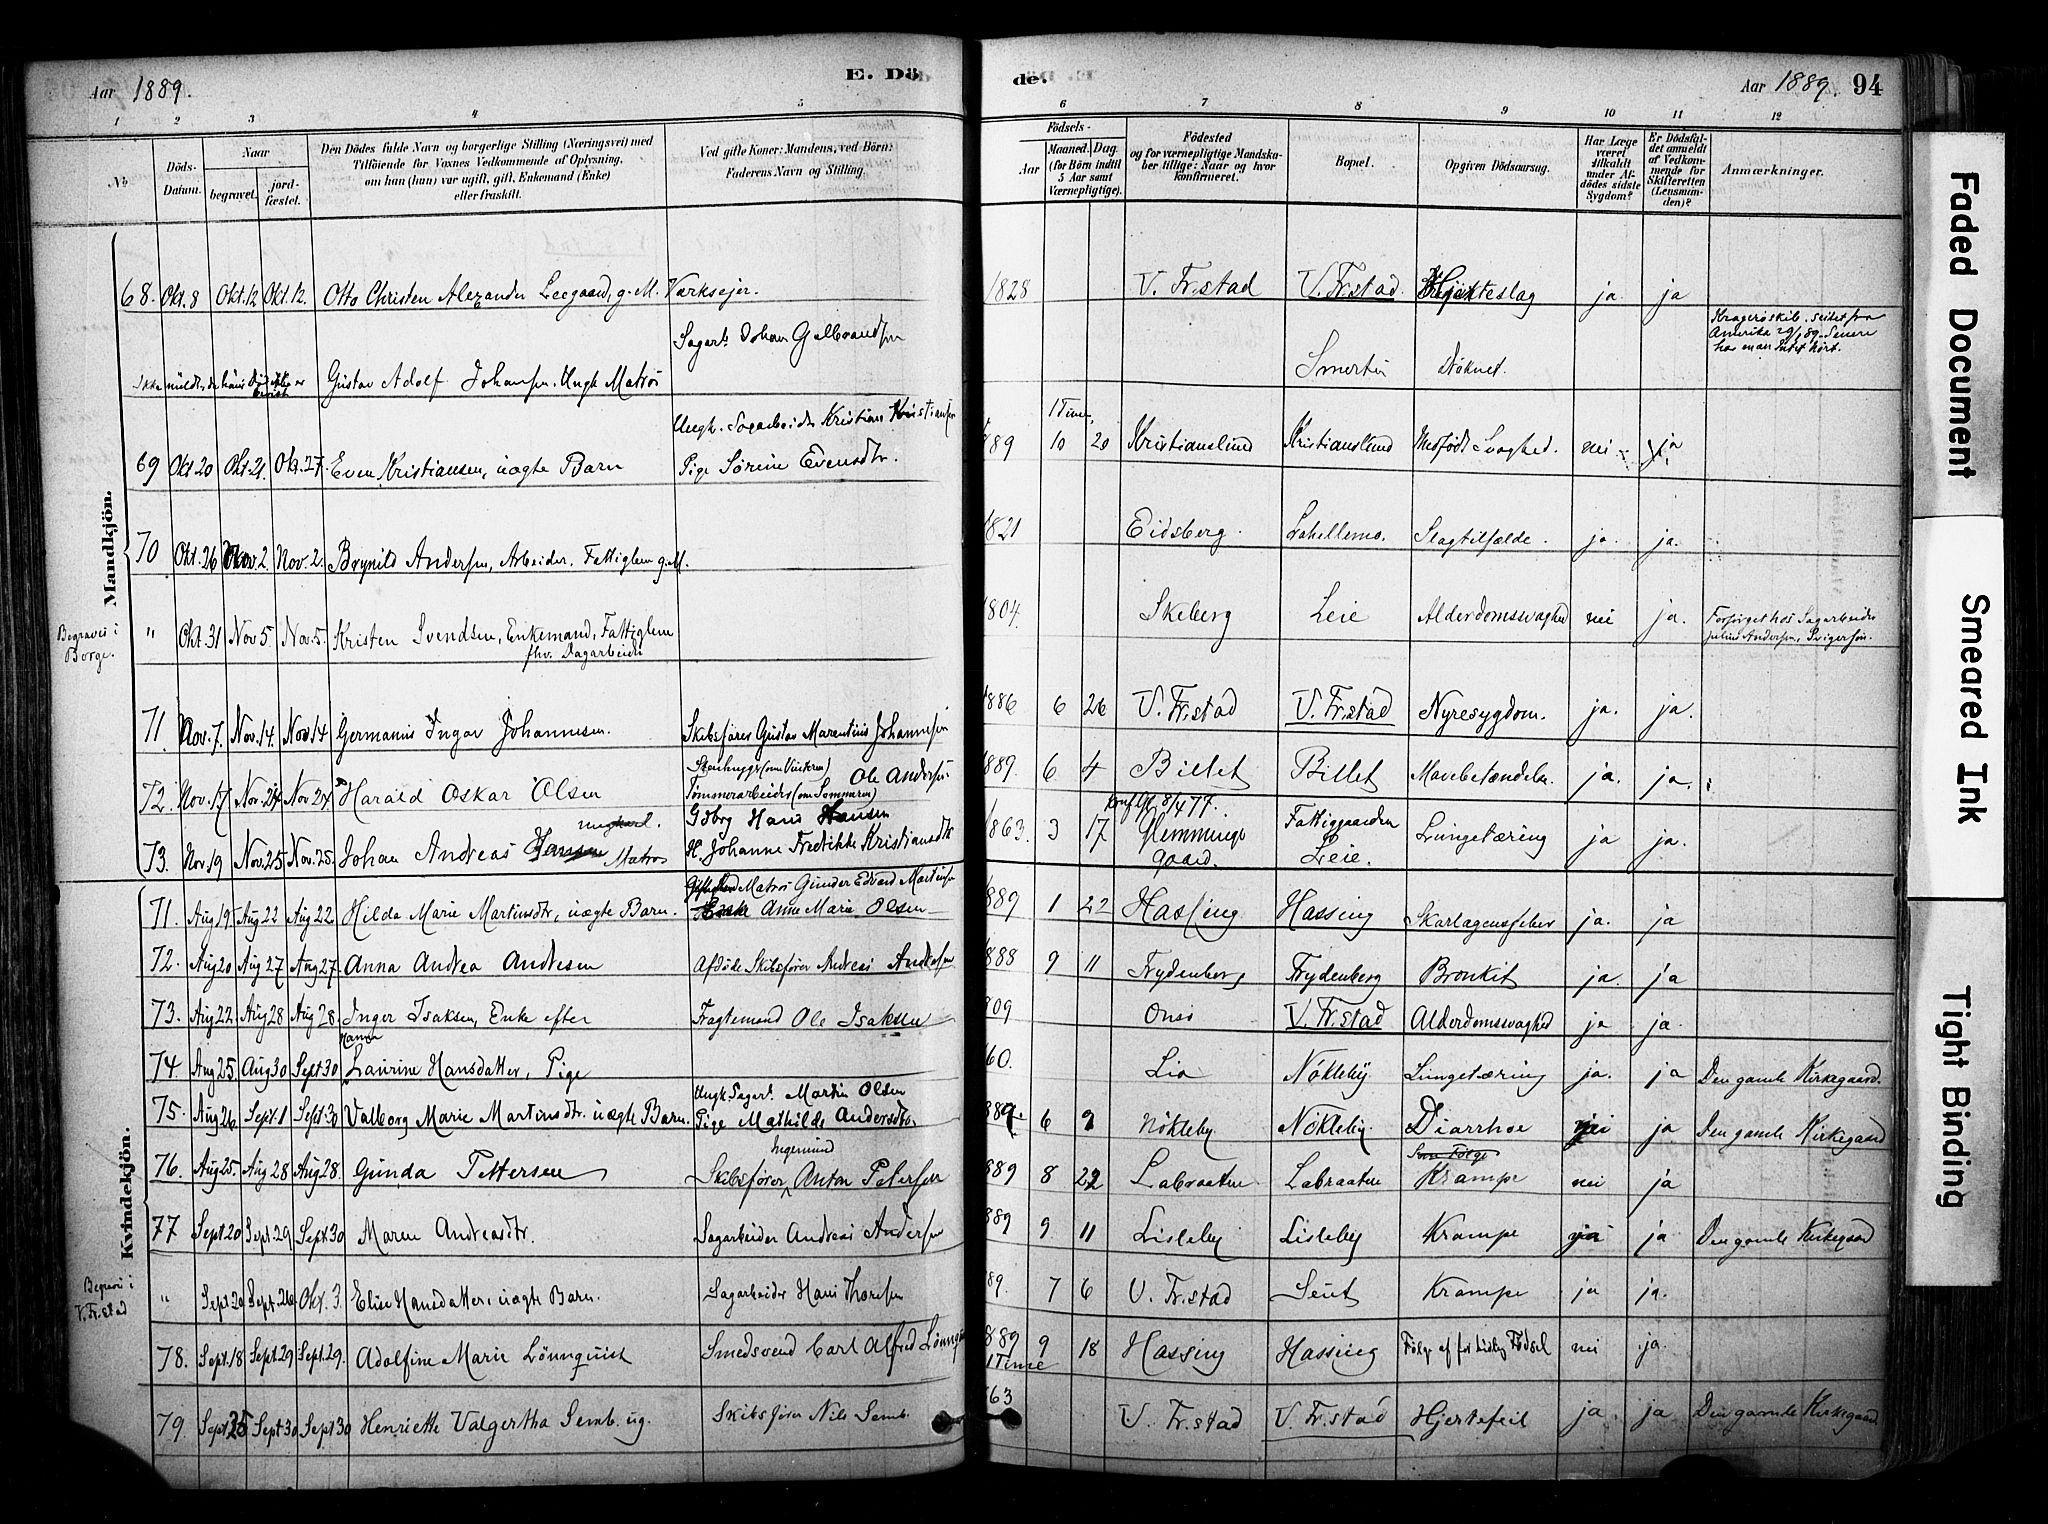 Aar 1889. E. Dö
de. Aar 1889. 94
1 2 3 4 5
6 7 8 9 10 11 12
No
Döds-Datum.
Naar
begravet. jord-fæstet.
Den Dödes fulde Navn og borgerlige Stilling (Næringsvei) med
Tilföiende for Voxnes Vedkommende af Oplysning,
om han (hun) var ugift, gift, Enkemand (Enke)
eller fraskilt.
Ved gifte Koner: Mandens, ved Börn:
Faderens Navn og Stilling.
Födsels-
Aar Maaned. Dag.
(for Börn indtil
5 Aar samt
Værnepligtige).
Födested
og for værnepligtige Mandska-
ber tillige: Naar og hvor
konfirmeret.
Bopæl.
Opgiven Dödsaarsag.
Har Læge
været
tilkaldt
under Af-
dödes sidste
Sygdom?
Er Dödsfal-
det anmeldt
af Vedkom-
mende for
Skifteretten
(Lensman-
den)?
Anmærkninger.
Mandkjön.
68. Okt. 8 Okt. 12 Okt. 12. Otto Christen Alexander Leegaard, g. M. Værksejer. 1828 V. Fr.stad V. Fr.stad. Hjerteslag ja. ja
Sagarb. Johan Gulbrandsen
Gustav Adolf Johansen. Ungk. Matros Smertu Döknet. Kragerøskib, seilet fra
Amerika 29/1 89. Senere
har man intet hört.
Ungk. Sagarbeider Kristian Kristiansen 1 Time
69 Okt 20 Okt. 21. Okt. 27. Even Kristiansen, uægte Barn Pige Sörine Evensdtr. 89 10 20 Kristianslund Kristianslund Medfödt Svaghed. nei ja
70 Okt. 26 Nov. 2. Nov. 2. Brynild Andersen, Arbeider, Fattiglem g. M. 1821 Eidsberg. Lahellemo. Slagtilfælde. ja. ja.
Begraves i
Borge.
" Okt. 31 Nov 5. Nov. 5. Kristen Svendsen, Enkemand, Fattiglem 1804. Skeberg Leie Alderdomssvaghed nei ja. Forsörget hos Sagarbeider
fhv. Dagarbeider Julius Andersen, Svigersön.
71. Nov. 7. Nov. 14. Nov 14 Germanius Ingar Johannesen. Skibsförer Gustav Marentius Johannesen 1886 6 26 V. Fr.stad V. Fr.stad Nyresygdom. ja. ja.
Stenhugger (om Vinteren) Ole Andersen
72. Nov. 17 Nov. 24 Nov 24 Harald Oskar Olsen Tömmerarbeider (om Sommeren) 1889. 6 4 Billet Billet Mavebetændelse ja. ja.
Ungkarl. Gdbrg. Hans Hansen Konf. Gl. 8/4 77. Fattiggaarden
73. Nov. 19 Nov. 25 Nov. 25. Johan Andreas Hansen Matros H. Johanne Fredrikke Kristiansdtr. 1863. 3 17 Glemminge gaard. Leie. Lungetæring ja ja.
Kvindekjön.
Matros Gunder Edvard Martinsen
71. Aug 19. Aug 22 Aug 22. Hilda Marie Martinsdtr, uægte Barn. Enke Anne Marie Olsen 889 1 22 Hassing Hassing Skarlagensfeber ja. ja
72. Aug 20 Aug 27 Aug 27. Anna Andrea Andresen Afdöde Skibsförer Andreas Andresen 1888 9 11 Frydenberg Frydenberg Bronkit ja. ja
73. Aug 22. Aug 28 Aug 28. Inger Isaksen, Enke efter Fragtemand Ole Isaksen 809 Onsö V. Fr.stad Alderdomssvaghed ja ja.
Hanna
74. Aug 25. Aug 30 Sept 30 Laurine Hansdatter, Pige 60. Lia Nökleby Lungetæring ja. ja Den gamle Kirkegaard.
Ungk. Sagarb. Martin Olsen
75. Aug 26 Sept. 1 Sept. 30 Valborg Marie Martinsdtr. uægte Barn. Pige Mathilde Andersdtr. 889 6 9 Nökleby Nökleby. Diarrhoe nei ja Den gamle Kirkegaard
Ingemund
76. Aug 25. Aug 28 Aug 28. Gunda Pettersen Skibsförer Anton Petersen 889 8 22 Labraaten Labraaten Krampe nei ja
77 Sept 20 Sept. 29 Sept. 30 Maren Andreasdtr. Sagarbeider Andreas Andersen 889 9 11 Lisleby Lisleby Krampe ja ja Den gamle Kirkegaard
Begravet i
V. Fr.stad
" Sept 20 Sept. 26 Okt. 3. Elise Hansdatter, uægte Barn. Sagarbeider Hans Thoresen 89. 7 6 V. Fr.stad Seut Krampe ja ja.
78. Sept. 18 Sept. 29 Sept. 29. Adolfine Marie Lönnquist Smedsvend Carl Alfred Lönnquist 889 9 18 Hassing Hassing Fölge af for tidlig Födsel nei ja.
1 Time
79. Sept 25 Sept 30 Sept 30 Henriette Valgertha Semb. ug. Skibsförer Nils Semb. 63 V. Fr.stad V. Fr.stad Hjertefeil ja ja Den gamle Kirkegaard
Faded Document
Smeared Ink
Tight Binding